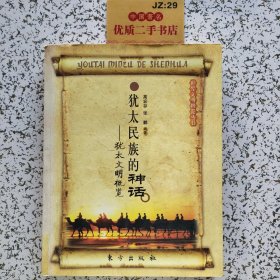 JZ:29
优质二手书店
YOUTAI MINZU DE SHENHUA
犹太民族的神话
——犹太文明概览
东方出版社